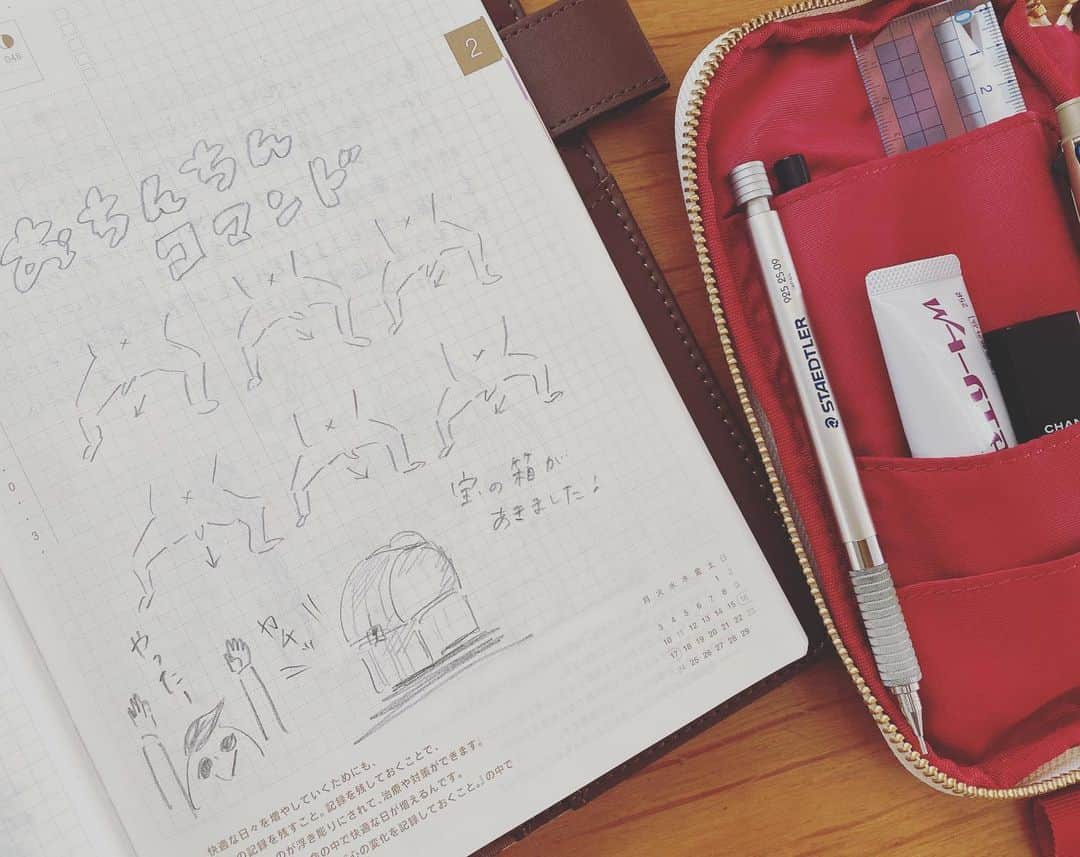 048
2
おちんちん
コマンド
宝の箱が
あきました!
やったー
ガチャッ
0.
3.
月 火 水 木 金 土 日
1 2
3 4 5 6 7 8 9
10 11 12 13 14 15 16
17 18 19 20 21 22 23
24 25 26 27 28 29
快適な日々を増やしていくためにも、
の記録を残すこと。記録を残しておくことで、
のが浮き彫りにされて、治癒や対策ができます。
の中で快適な日が増えるんです。
の変化を記録しておくこと。」の中で
STAEDTLER
925 25-09
CHAN
1
2